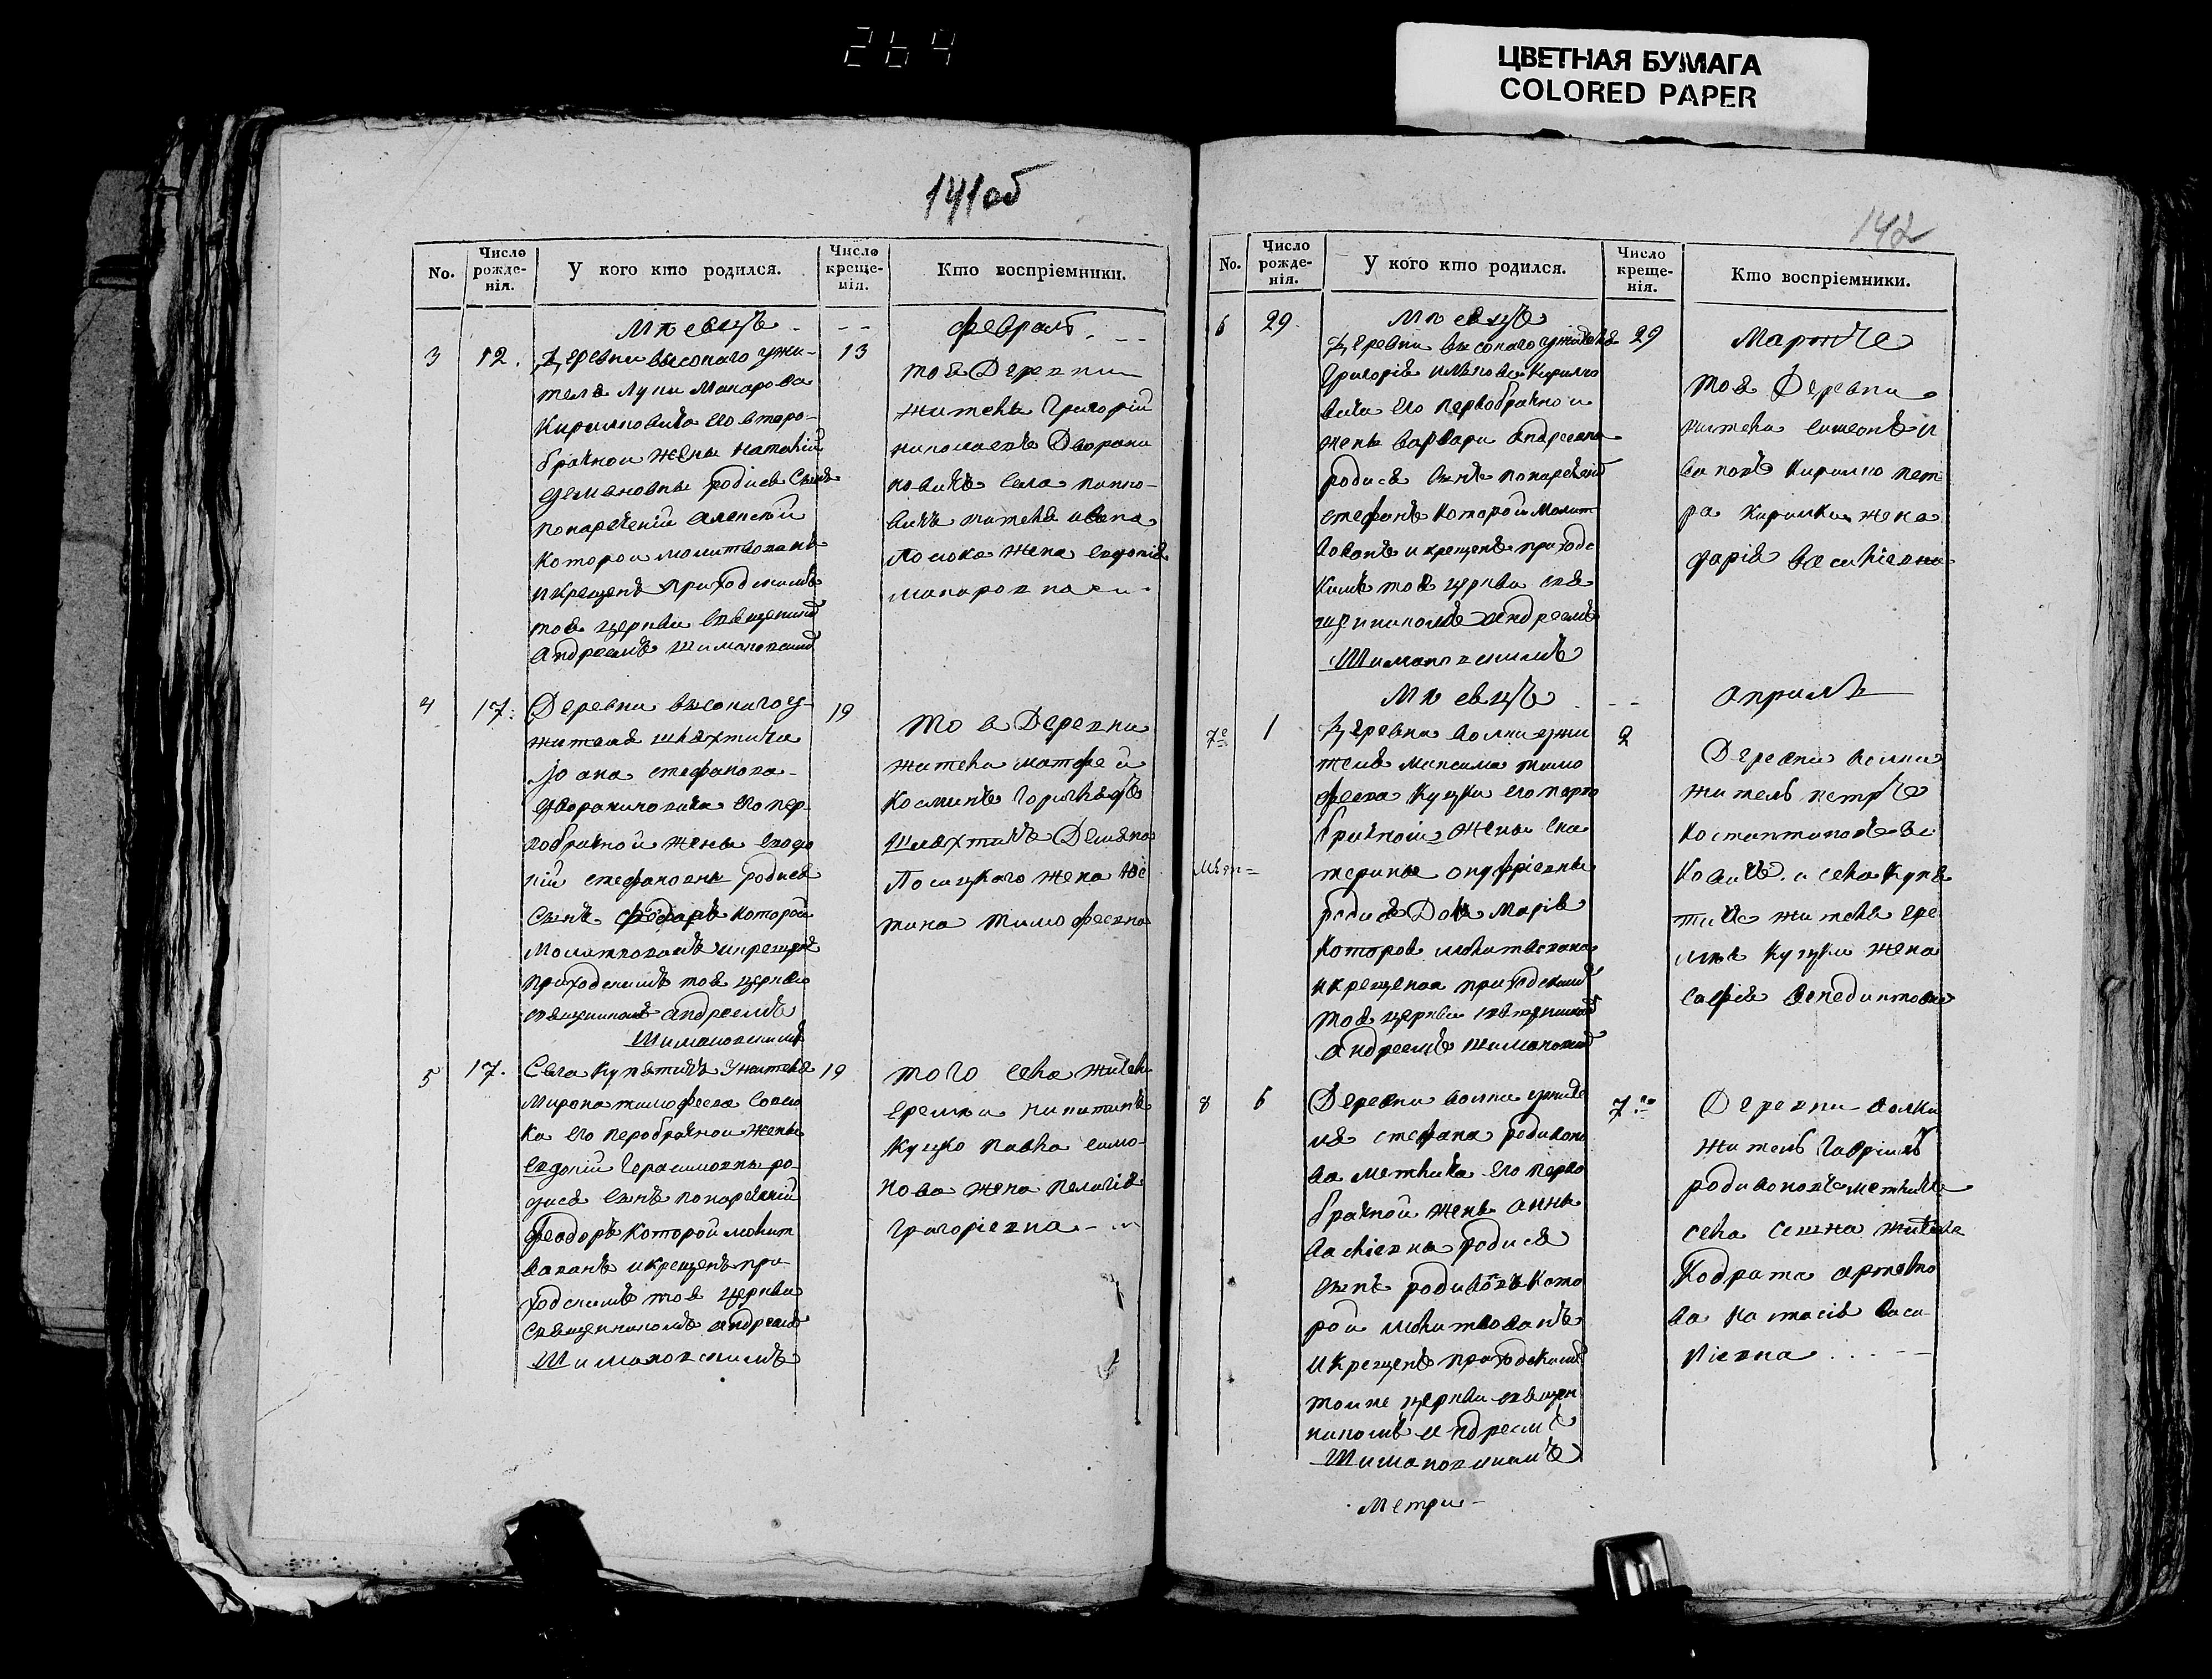 264
ЦВЕТНАЯ БУМАГА
COLORED PAPER
141об
No. Число рожденія. У кого кто родился. Число крещенія. Кто воспріемники.
Мѣсяцъ - - февраль
3 12. Деревни высокаго ужи- 13
теля Луки Макарова
Кирилловича его второ-
брачной жены Наталіи
родися Сынъ
понареченій Алексей
которой молитвованъ
икрещенъ приходскимъ
тоя церкви Священникомъ
Андреемъ Шимановскимъ
тоя Деревни
житель Григорій
села
житела Ивана
жена Евдокія
Макаровна
4 17. Деревни высокаго у- 19
жителя шляхтича
Іоана стефанова
его пер-
вобрачной жены Евдо
кіи стефановны родися
Сынъ феодоръ которой
молитвованъ икрещенъ
приходскимъ тоя церкви
священникомъ андреемъ
Шимановскимъ
тоя Деревни
житель матфей
шляхтичъ
жена
тимофеевна
5 17. Села Купятичъ Ужителя 19
Мирона тимофеева
ка его первобрачной жены
Евдокіи Герасимовны ро
дися сынъ понареченій
феодоръ которой молит
вованъ икрещенъ при-
ходскимъ тоя церкви
Священникомъ андреемъ
Шимановскимъ
того села житель
никитинъ
Куцко павла симо-
нова жена пелагія
григоріевна
142
No. Число рожденія. У кого кто родился. Число крещенія. Кто воспріемники.
6 29. Мѣсяцъ 29 Мартъ
Деревни высокаго ужителя
Григорія Кирило
вича его первобрачной
жены варвары андреевны
родися сынъ понареченій
стефанъ которой молит
вованъ икрещенъ приходс
кимъ тоя церкви свя
щенникомъ андреемъ
Шимановскимъ
тоя Деревни
житель симеонъ
Кирилко пет
ра жена
дарія васильевна
Мѣсяцъ - - априль
7е 1 Деревни волки ужи 2
теля максима тимо
феева Куцки его перво
брачной жены ека
терины онуфріевны
родися Дочь Марія
которая молитвована
икрещена приходскимъ
тоя церкви священникомъ
андреемъ шимановскимъ
Деревни волки
житель петръ
Константиновъ
и села Купя
тичъ житела ере
Куцки жена
софія
8 6 Деревни волки ужите 7го
ля стефана родионо
ва метлича его перво
брачной жены анны
васіліевны родися
сынъ родивонъ кото
рой молитвованъ
икрещенъ приходскимъ
тоя же церкви священ
никомъ андреемъ
Шимановскимъ
Деревни волки
житель гавріилъ
родивоновъ метличъ
села житела
Кодрата
ва настасія васи
ліевна
Метри-